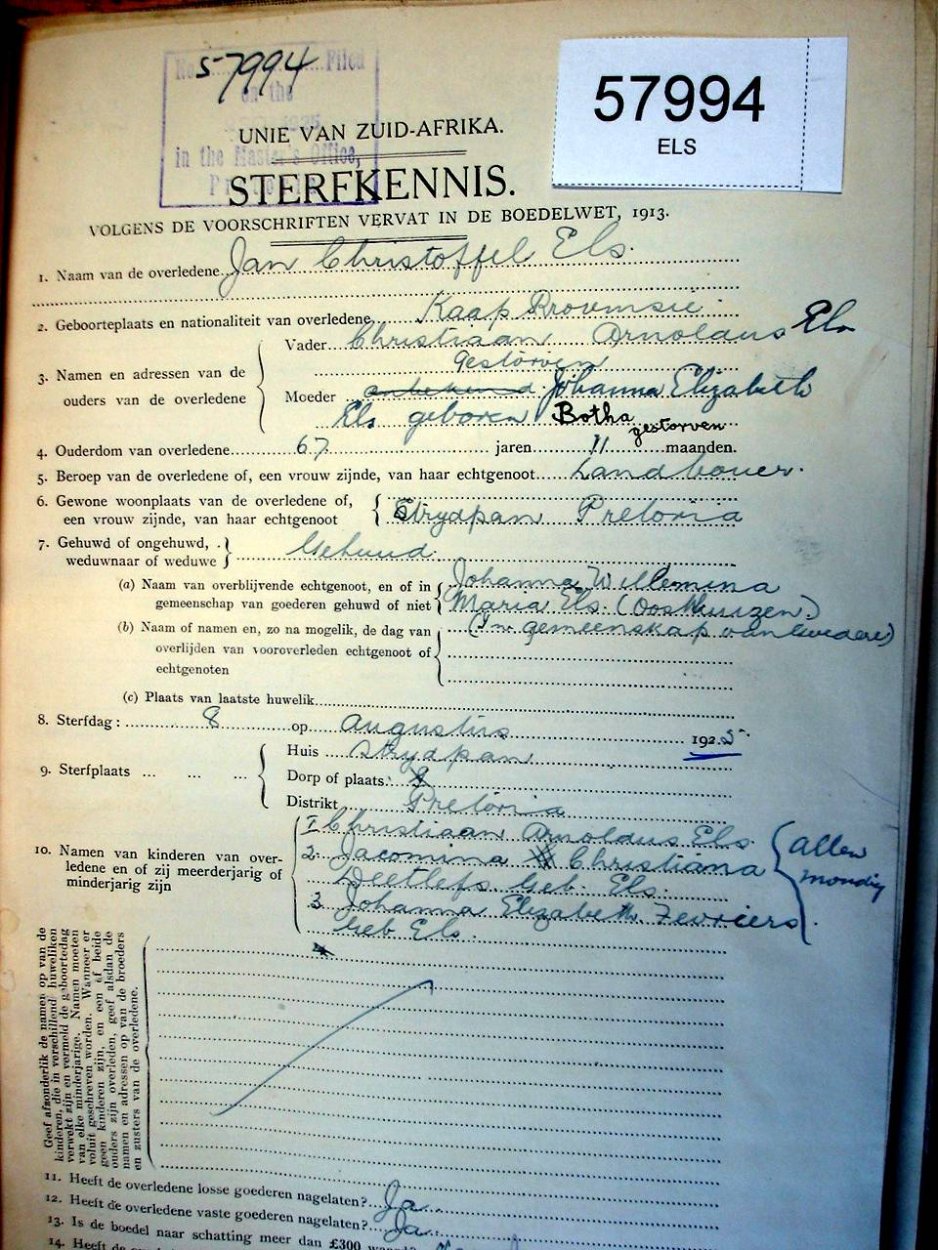 57994
ELS
57994
No. Filed
on the
in the Master's Office,
UNIE VAN ZUID-AFRIKA.
STERFKENNIS.
VOLGENS DE VOORSCHRIFTEN VERVAT IN DE BOEDELWET, 1913.
1. Naam van de overledene Jan Christoffel Els.
2. Geboorteplaats en nationaliteit van overledene Kaap Provinsie.
3. Namen en adressen van de ouders van de overledene
Vader Christiaan Arnoldus Els
Gestorven
Moeder Johanna Elizabeth
Els geboren Botha gestorven
4. Ouderdom van overledene 67 jaren 11 maanden.
5. Beroep van de overledene of, een vrouw zijnde, van haar echtgenoot Landbouer.
6. Gewone woonplaats van de overledene of,
een vrouw zijnde, van haar echtgenoot Strydpan Pretoria
7. Gehuwd of ongehuwd,
weduwnaar of weduwe Gehuud
(a) Naam van overblijvende echtgenoot, en of in Johanna Willemina
gemeenschap van goederen gehuwd of niet Maria Els. (Oosthuizen.)
(b) Naam of namen en, zo na mogelik, de dag van (In gemeenskap van
overlijden van vooroverleden echtgenoot of
echtgenoten
(c) Plaats van laatste huwelik
8. Sterfdag: 8 op Augustus 1925
9. Sterfplaats ... ... ...
Huis Strydpan
Dorp of plaats
Distrikt Pretoria
10. Namen van kinderen van over-
ledene en of zij meerderjarig of
minderjarig zijn
1 Christiaan Arnoldus Els
2. Jacomina Christiana
Deetlefs Geb. Els.
3 Johanna Elizabeth
Geb Els.
Allen
mondig
4
Geef afzonderlik de namen op van de
kinderen, die in verschillend huweliken
verwekt zijn en vermeld de geboortedag
van elke minderjarige. Namen moeten
voluit geschreven worden. Wanneer er
geen kinderen zijn, en een of beide
ouders zijn overleden, geef alsdan de
namen en adressen op van de broeders
en zusters van de overledene.
11. Heeft de overledene losse goederen nagelaten? Ja
12. Heeft de overledene vaste goederen nagelaten? Ja
13. Is de boedel naar schatting meer dan £300
14. Heeft de